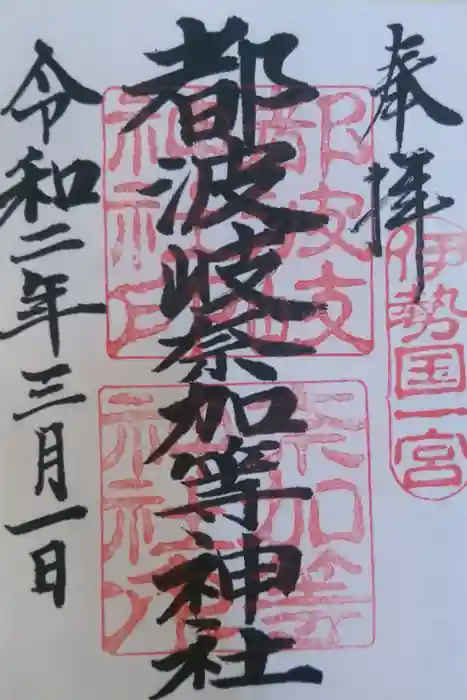 奉拝
伊勢国一宮
都波岐奈加等神社
令和二年三月一日